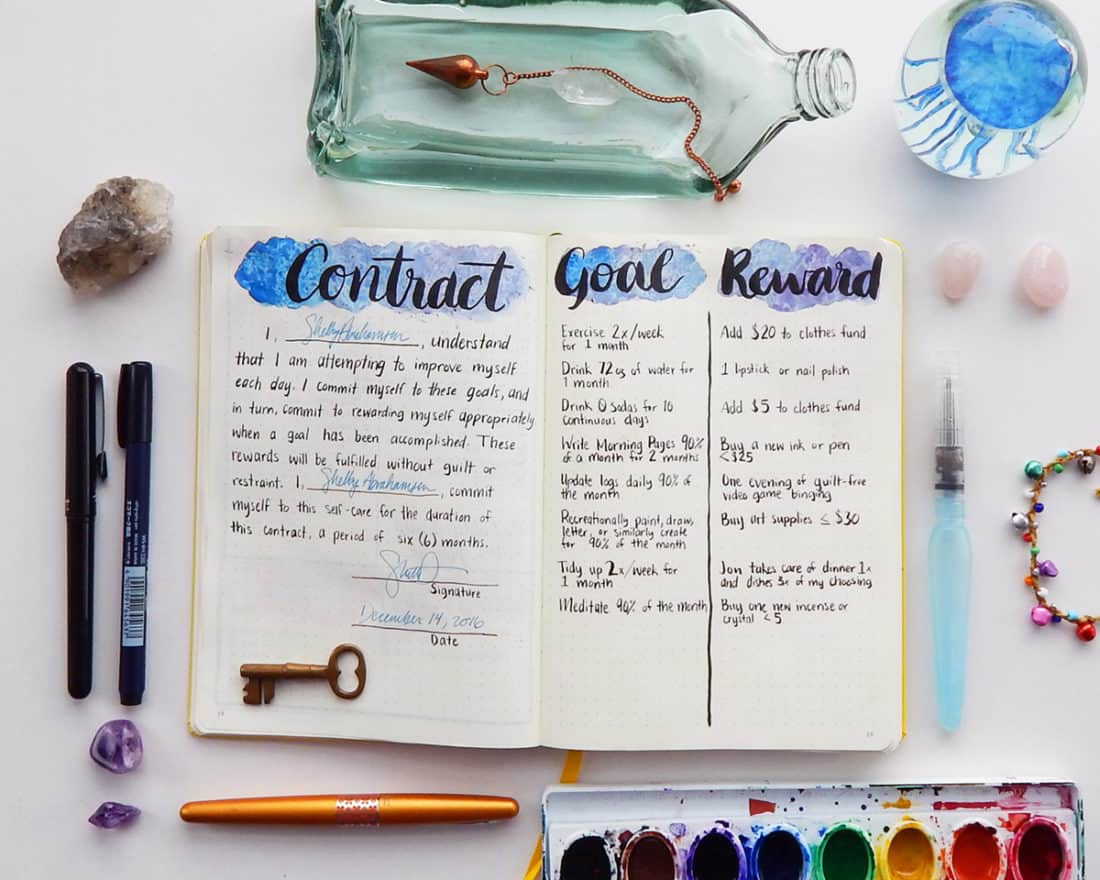 Contract
I, Shelly Abrahamsen, understand
that I am attempting to improve myself
each day. I commit myself to these goals, and
in turn, commit to rewarding myself appropriately
when a goal has been accomplished. These
rewards will be fulfilled without guilt or
restraint. I, Shelly Abrahamsen, commit
myself to this self-care for the duration of
this contract, a period of six (6) months.
Signature
December 14, 2016
Date
Goal
Exercise 2x/week
for 1 month
Drink 72oz of water for
1 month
Drink 0 sodas for 10
continuous days
Write Morning Pages 90%
of a month for 2 months
Update logs daily 90% of
the month
Recreationally paint, draw,
letter, or similarly create
for 90% of the month
Tidy up 2x/week for
1 month
Meditate 90% of the month
Reward
Add $20 to clothes fund
1 lipstick or nail polish
Add $5 to clothes fund
Buy a new ink or pen
<$25
One evening of guilt-free
video game binging
Buy art supplies ≤ $30
Jon takes care of dinner 1x
and dishes 3x of my choosing
Buy one new incense or
crystal <5